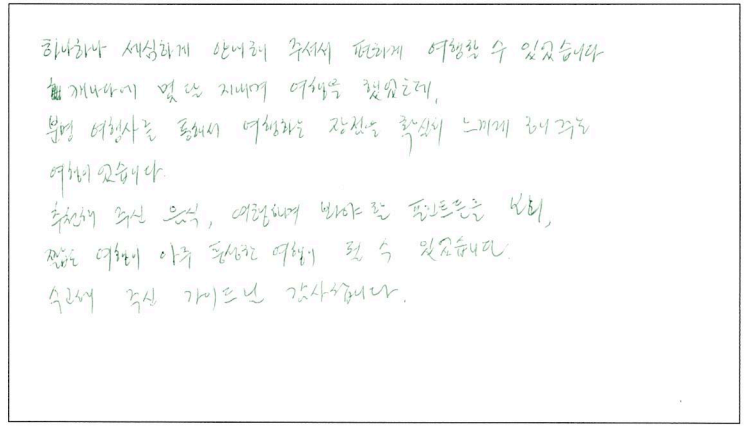 하나하나 세심하게 안내해 주셔서 편하게 여행할 수 있었습니다
캐나다에 몇 달 지내며 여행을 했었는데,
분명 여행사를 통해서 여행하는 장점을 확실히 느끼게 해 주는
여행이었습니다.
추천해 주신 음식, 여행하며 봐야 할 포인트들을 보며,
짧은 여행이 아주 풍성한 여행이 될 수 있었습니다.
수고해 주신 가이드님 감사합니다.